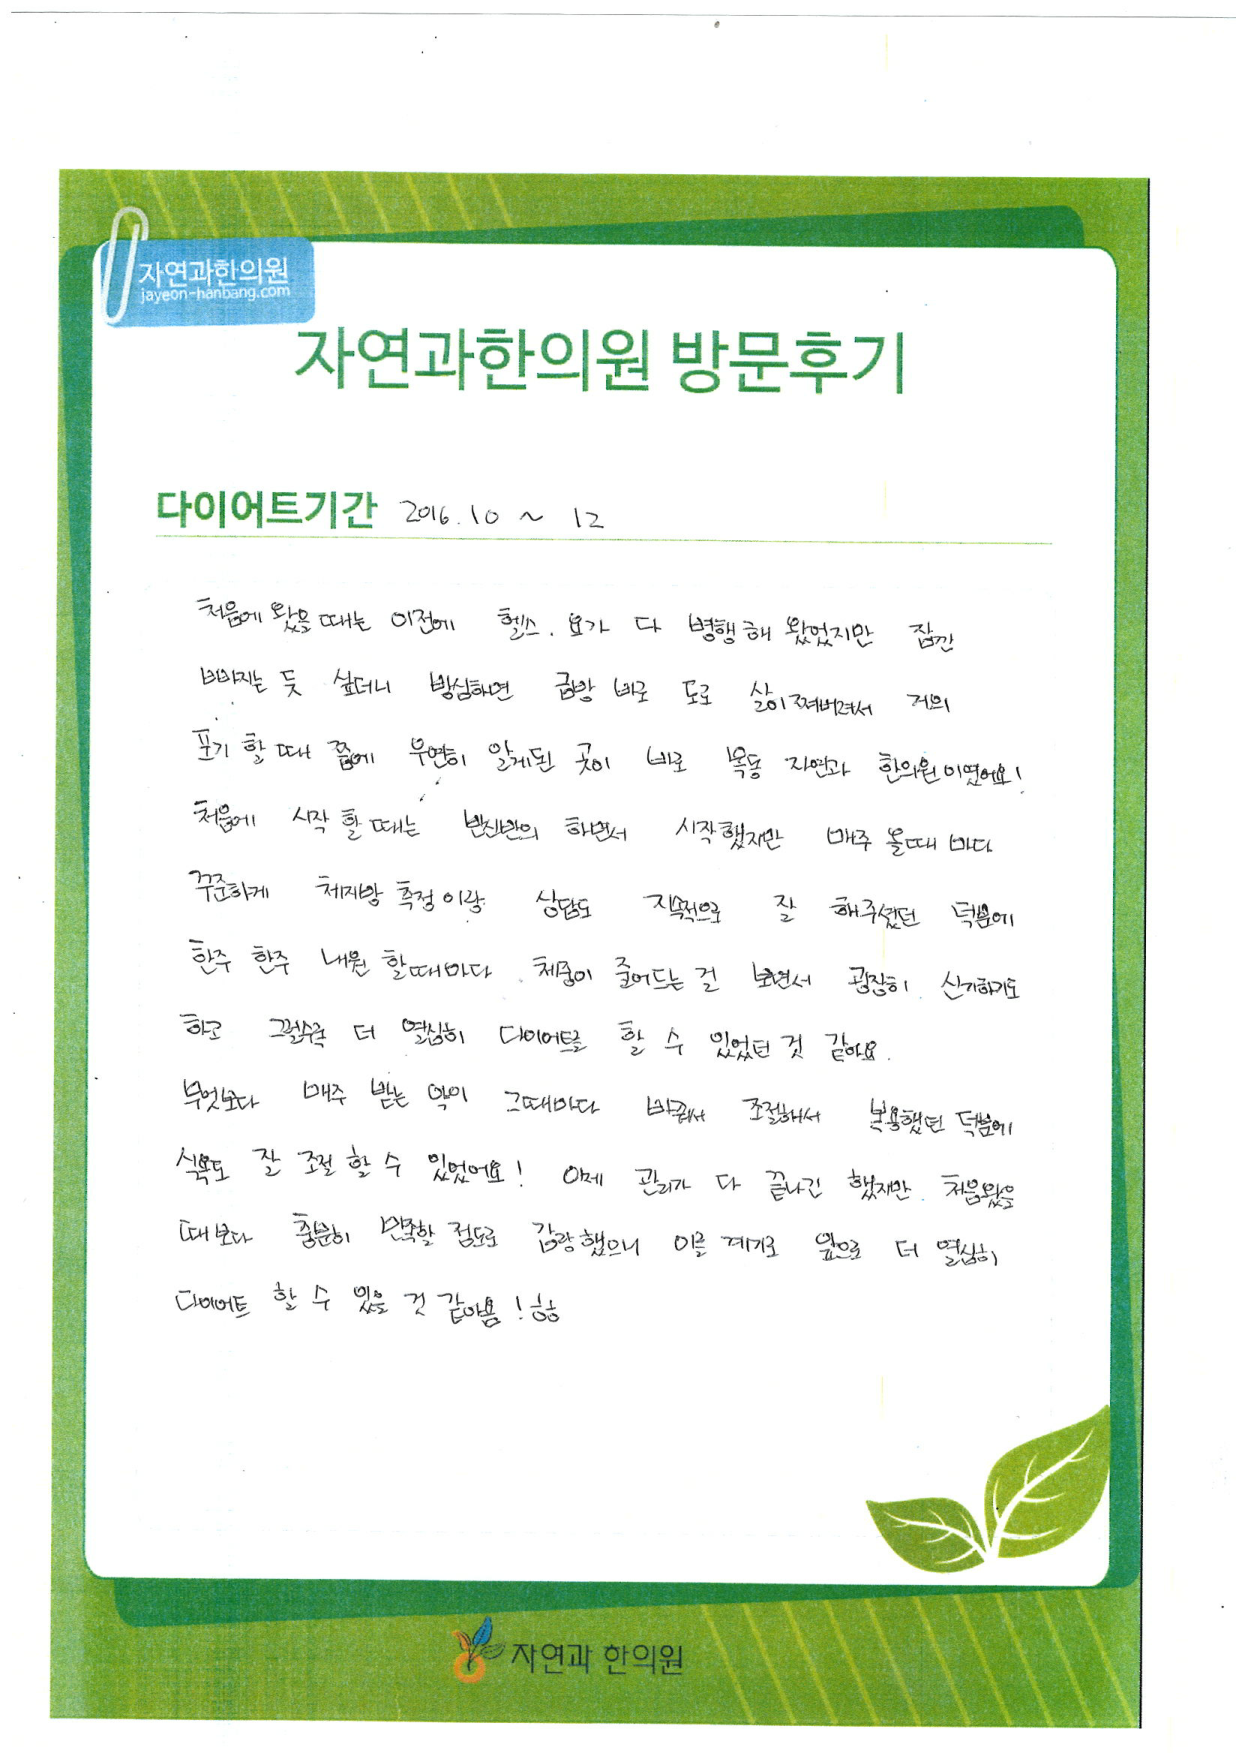 자연과한의원
jayeon-hanbang.com
자연과한의원 방문후기
다이어트기간 2016.10 ~ 12
처음에 왔을 때는 이전에 헬스. 요가 다 병행해 왔었지만 잠깐
빠지는 듯 싶더니 방심하면 금방 바로 도로 살이쪄버려서 거의
포기 할 때 쯤에 우연히 알게된 곳이 바로 목동 자연과 한의원이였어요!
처음에 시작 할 때는 반신반의 하면서 시작했지만 매주 올때 마다
꾸준하게 체지방 측정이랑 상담도 지속적으로 잘 해주셨던 덕분에
한주 한주 내원 할때마다 체중이 줄어드는 걸 보면서 굉장히 신기하기도
하고 그럴수록 더 열심히 다이어트를 할 수 있었던 것 같아요.
무엇보다 매주 받는 약이 그때마다 바뀌어서 조절해서 복용했던 덕분에
식욕도 잘 조절 할 수 있었어요! 이제 관리가 다 끝나긴 했지만 처음왔을
때보다 충분히 만족할 정도로 감량했으니 이를 계기로 앞으로 더 열심히
다이어트 할 수 있을 것 같아욤! ㅎㅎ
자연과 한의원